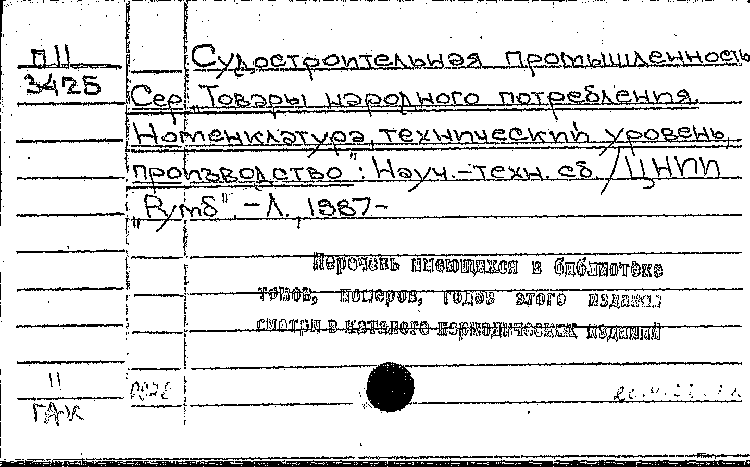 П II
3425
Судостроительная промышленность
Сер. „Товары народного потребления.
Номенклатура, технический уровень,
производство": Науч.-техн. сб. / ЦНИИ
„Румб". – Л., 1987–
Перечень имеющихся в библиотеке
томов, номеров, годов этого издания
смотри в каталоге периодических изданий
II
ГАК